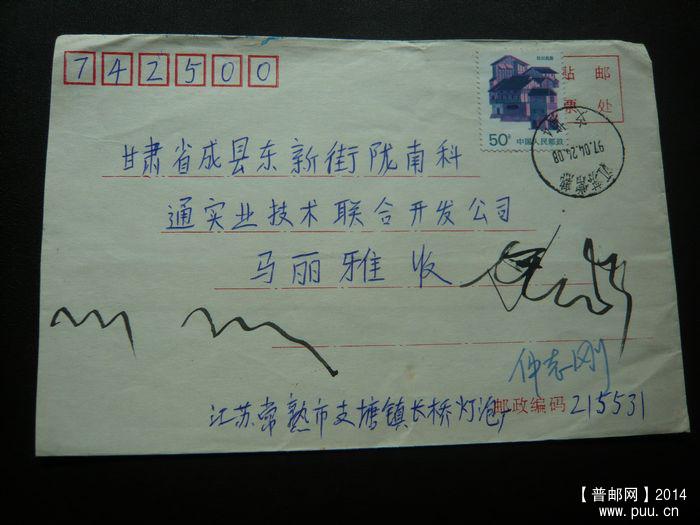 742500
贴 邮
票 处
50分
中国人民邮政
97.04.24.08
江苏常熟
甘肃省成县东新街陇南科
通实业技术联合开发公司
马丽雅 收
仲志刚
江苏常熟市支塘镇长桥灯泡厂
邮政编码 215531
【普邮网】2014
www.puu.cn